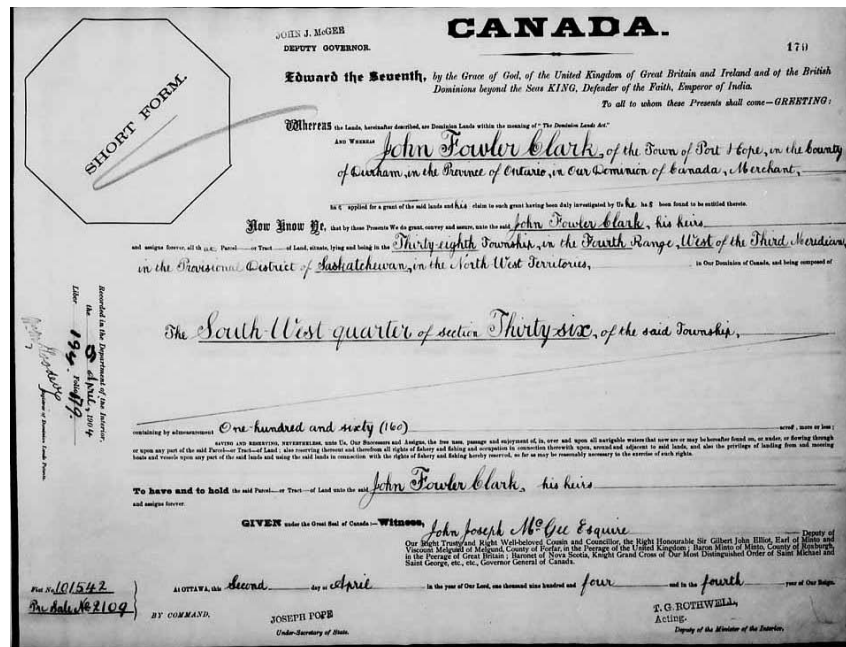 JOHN J. McGEE
DEPUTY GOVERNOR.
CANADA.
179
SHORT FORM.
Edward the Seventh, by the Grace of God, of the United Kingdom of Great Britain and Ireland and of the British
Dominions beyond the Seas KING, Defender of the Faith, Emperor of India.
To all to whom these Presents shall come—GREETING:
Whereas the Lands, hereinafter described, are Dominion Lands within the meaning of "The Dominion Lands Act."
AND WHEREAS John Fowler Clark, of the Town of Port Hope, in the County
of Durham, in the Province of Ontario, in Our Dominion of Canada, Merchant,
ha s applied for a grant of the said lands and his claim to such grant having been duly investigated by Us he ha s been found to be entitled thereto.
Now Know Ye, that by these Presents We do grant, convey and assure, unto the said John Fowler Clark, his heirs
and assigns forever, all th at Parcel or Tract of Land, situate, lying and being in the Thirty-eighth Township, in the Fourth Range, West of the Third Meridian,
in the Provisional District of Saskatchewan, in the North West Territories, in Our Dominion of Canada, and being composed of
The South West quarter of section Thirty six, of the said Township,
Recorded in the Department of the Interior,
the 8 April, 1904
Liber 194. Folio 179.
containing by admeasurement One hundred and sixty (160) acres, more or less;
SAVING AND RESERVING, NEVERTHELESS, unto Us, Our Successors and Assigns, the free uses, passage and enjoyment of, in, over and upon all navigable waters that now are or may be hereafter found on, or under, or flowing through
or upon any part of the said Parcel—or Tract—of Land; also reserving thereout and therefrom all rights of fishery and fishing and occupation in connection therewith upon, around and adjacent to said lands, and also the privilege of landing from and mooring
boats and vessels upon any part of the said lands and using the said lands in connection with the rights of fishery and fishing hereby reserved, so far as may be reasonably necessary to the exercise of such rights.
To have and to hold the said Parcel—or Tract—of Land unto the said John Fowler Clark, his heirs
and assigns forever.
GIVEN under the Great Seal of Canada:—Witness, John Joseph McGee Esquire Deputy of
Our Right Trusty and Right Well-beloved Cousin and Councillor, the Right Honourable Sir Gilbert John Elliot, Earl of Minto and
Viscount Melgund of Melgund, County of Forfar, in the Peerage of the United Kingdom; Baron Minto of Minto, County of Roxburgh,
in the Peerage of Great Britain; Baronet of Nova Scotia, Knight Grand Cross of Our Most Distinguished Order of Saint Michael and
Saint George, etc., etc., Governor General of Canada.
Fiat No. 101542
Pre Sale No 2109
At OTTAWA, this Second day of April in the year of Our Lord, one thousand nine hundred and four and in the fourth year of Our Reign.
BY COMMAND,
JOSEPH POPE
Under-Secretary of State.
T. G. ROTHWELL,
Acting.
Deputy of the Minister of the Interior.